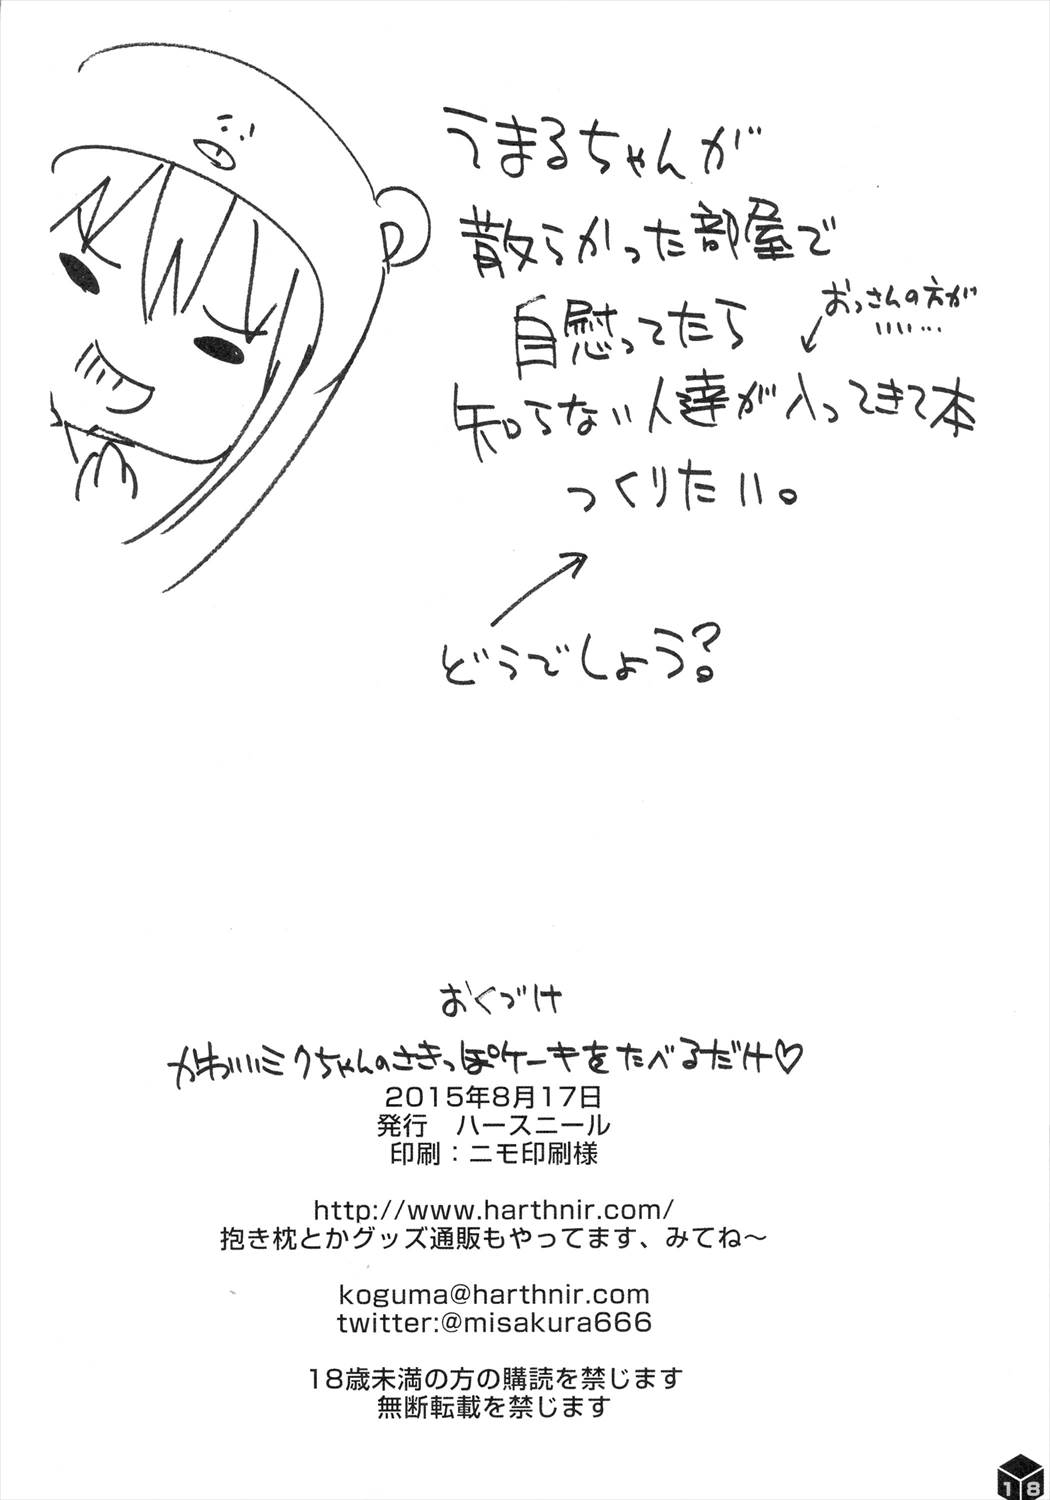 うまるちゃんが
散らかった部屋で
自慰ってたら
おっさんの方が
いいい…
知らない人達が入ってきて本
つくりたい。
どうでしょう?
おくづけ
かわいいミクちゃんのさきっぽケーキをたべるだけ♡
2015年8月17日
発行　ハースニール
印刷：ニモ印刷様
http://www.harthnir.com/
抱き枕とかグッズ通販もやってます、みてね～
koguma@harthnir.com
twitter:@misakura666
18歳未満の方の購読を禁じます
無断転載を禁じます
18